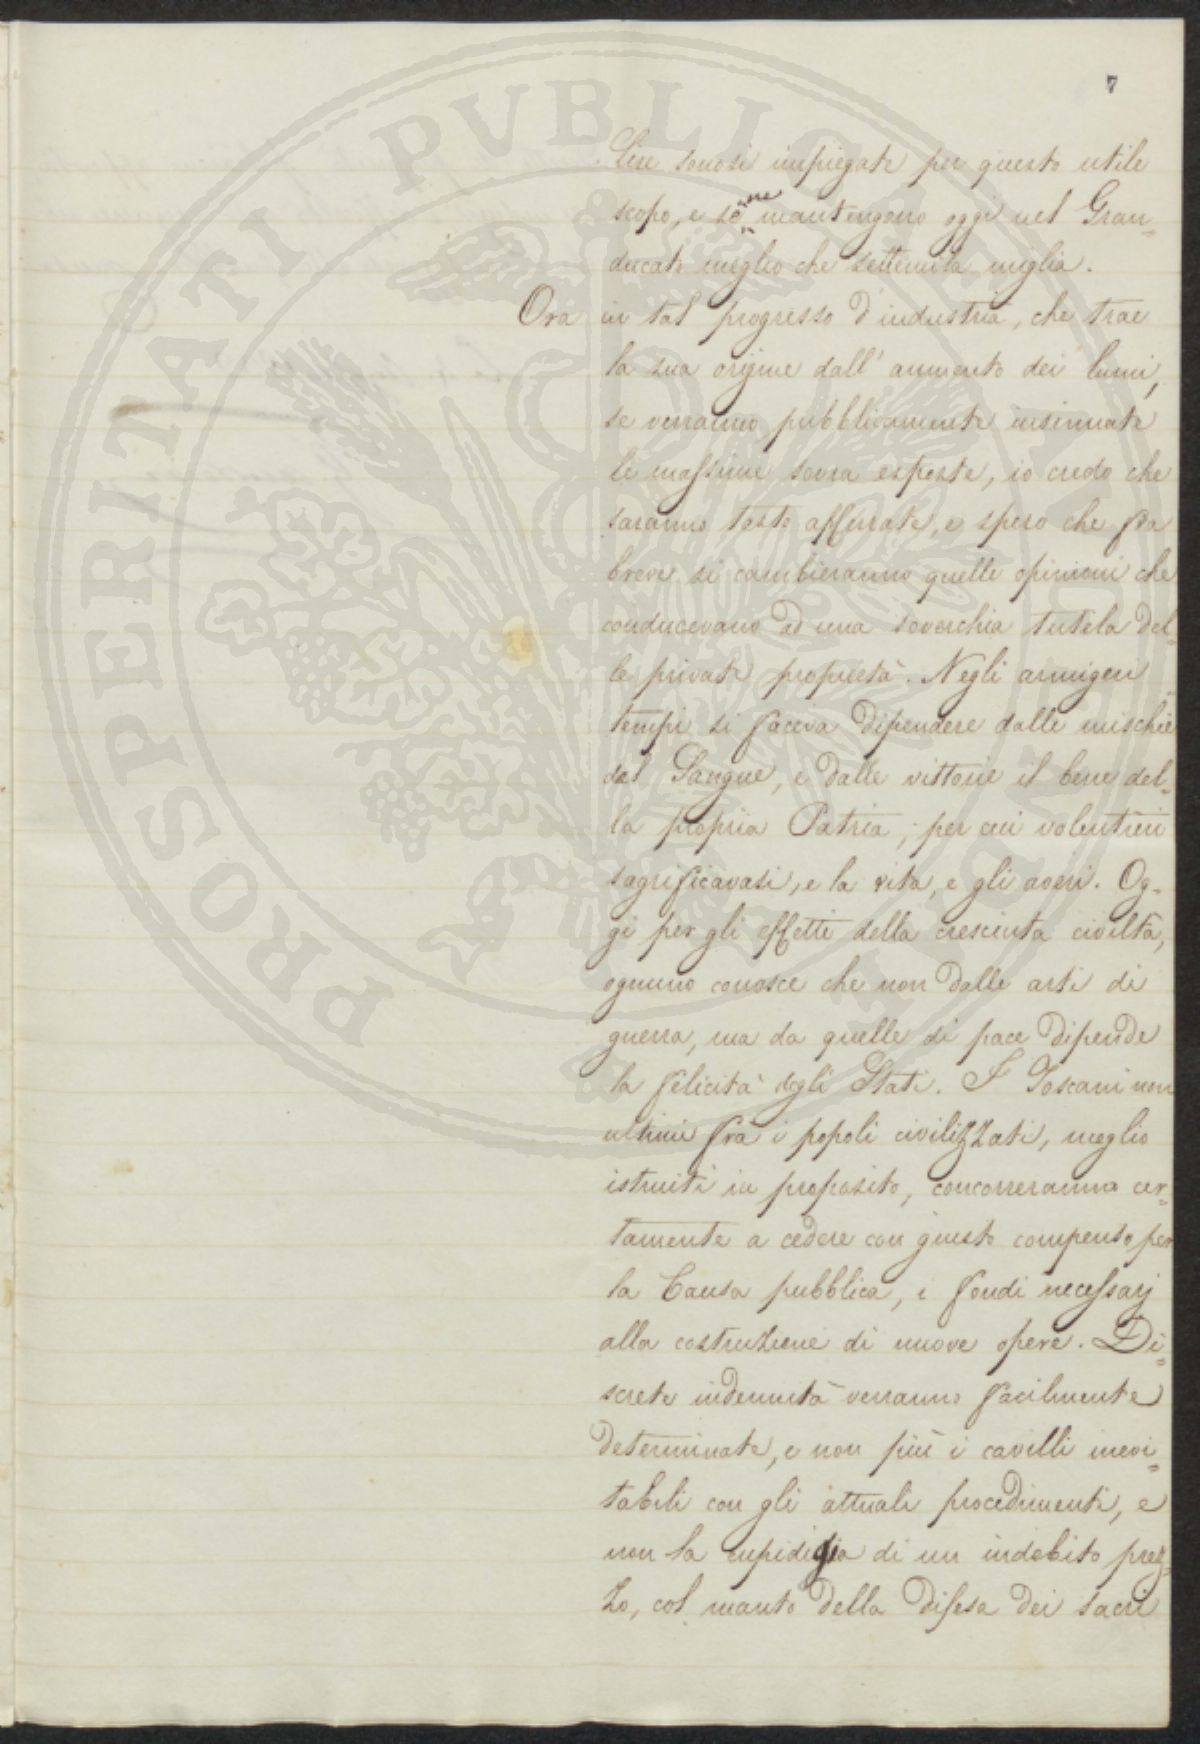 7
Lire sonosi impiegate per questo utile
scopo, e se ne mantengono oggi nel Gran=
ducato meglio che settemila miglia.
Ora in tal progresso d'industria, che trae
la sua origine dall'aumento dei lumi,
se verranno pubblicamente insinuate
le massime sovra esposte, io credo che
saranno tosto afferrate, e spero che fra
breve si cambieranno quelle opinioni che
conducevano ad una soverchia tutela del=
le private proprietà. Negli armigeri
tempi si faceva dipendere dalle mischie
dal Sangue, e dalle vittorie il bene del=
la propria Patria, per cui volentieri
sagrificavasi, e la vita, e gli averi. Og=
gi per gli effetti della cresciuta civiltà,
ognuno conosce che non dalle arti di
guerra, ma da quelle di pace dipende
la felicità degli Stati. I Toscani non
ultimi frà i popoli civilizzati, meglio
istruiti in proposito, concorreranno cer=
tamente a cedere con giusto compenso per
la Causa pubblica, i fondi necessarj
alla costruzione di nuove opere. Di=
screte indennità verranno facilmente
determinate, e non più i cavilli inevi=
tabili con gli attuali procedimenti, e
non la cupidigia di un indebito prez=
zo, col manto della difesa dei sacri
PROSPERITATI PVBLICAE